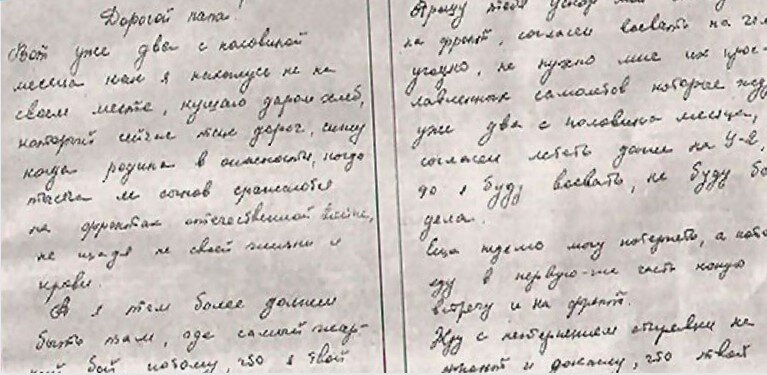 Дорогой папа!
Вот уже два с половиной
месяца как я нахожусь не на
своем месте, кушаю даром хлеб,
который сейчас так дорог, сижу
когда родина в опасности, когда
тысячи ее сынов сражаются
на фронтах отечественной войны,
не щадя не своей жизни и
крови.
А я тем более должен
быть там, где самый жар-
бой потому, что я твой
Прошу тебя
на фронт, согласен воевать на чем
угодно, не нужно мне их прос-
лавленных самолетов которые жду
уже два с половина месяца,
согласен лететь даже на У-2,
до я буду воевать, не буду бо
дела.
Еще неделю могу потерпеть, а пото
еду в первую-же часть какую
встречу и на фронт.
Жду с нетерпением отправки на
и докажу, что твой